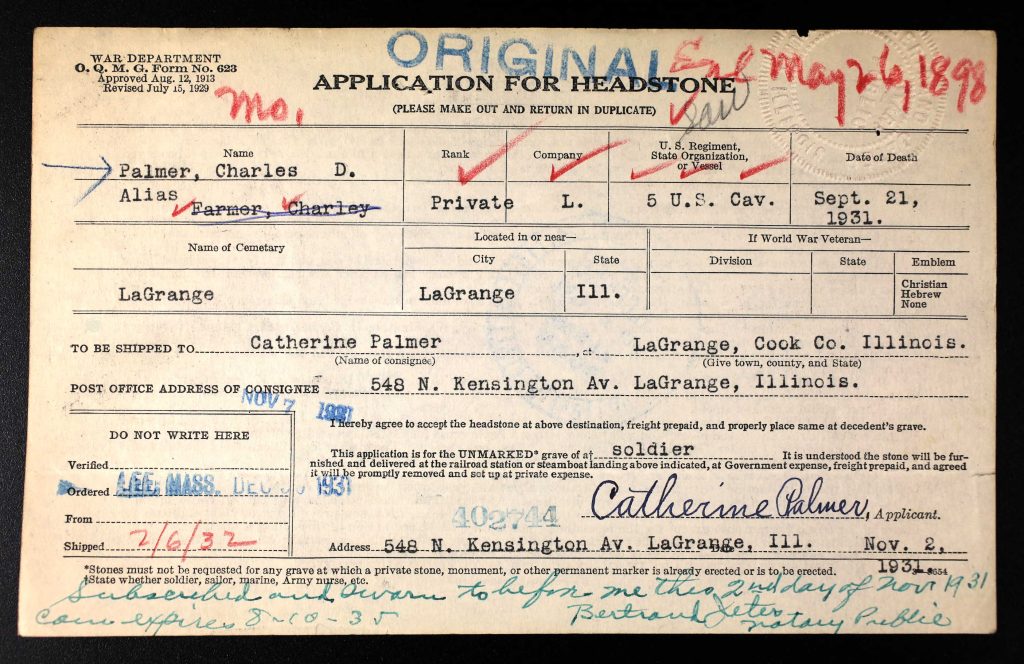 ORIGINAL
WAR DEPARTMENT
O. Q. M. G. Form No. 623
Approved Aug. 12, 1913
Revised July 15, 1929
Mo.
APPLICATION FOR HEADSTONE
(PLEASE MAKE OUT AND RETURN IN DUPLICATE)
May 26, 1898
Name
Rank
Company
U. S. Regiment,
State Organization,
or Vessel
Date of Death
Palmer, Charles D.
Alias
Farmer, Charley
Private
L.
5 U.S. Cav.
Sept. 21,
1931.
Name of Cemetary
Located in or near—
City
State
If World War Veteran—
Division
State
Emblem
LaGrange
LaGrange
Ill.
Christian
Hebrew
None
TO BE SHIPPED TO Catherine Palmer, at LaGrange, Cook Co. Illinois.
(Name of consignee)
(Give town, county, and State)
POST OFFICE ADDRESS OF CONSIGNEE 548 N. Kensington Av. LaGrange, Illinois.
NOV 7 1931
I hereby agree to accept the headstone at above destination, freight prepaid, and properly place same at decedent's grave.
DO NOT WRITE HERE
Verified
Ordered LEE, MASS. DEC 1931
From
Shipped 2/6/32
This application is for the UNMARKED* grave of a† soldier It is understood the stone will be fur-
nished and delivered at the railroad station or steamboat landing above indicated, at Government expense, freight prepaid, and agreed
it will be promptly removed and set up at private expense.
402744
Catherine Palmer, Applicant.
Address 548 N. Kensington Av. LaGrange, Ill. Nov. 2,
1931.
*Stones must not be requested for any grave at which a private stone, monument, or other permanent marker is already erected or is to be erected.
†State whether soldier, sailor, marine, Army nurse, etc.
Subscribed and sworn to before me this 2nd day of Nov 1931
Com expires 8-10-35
Bertrand
Notary Public